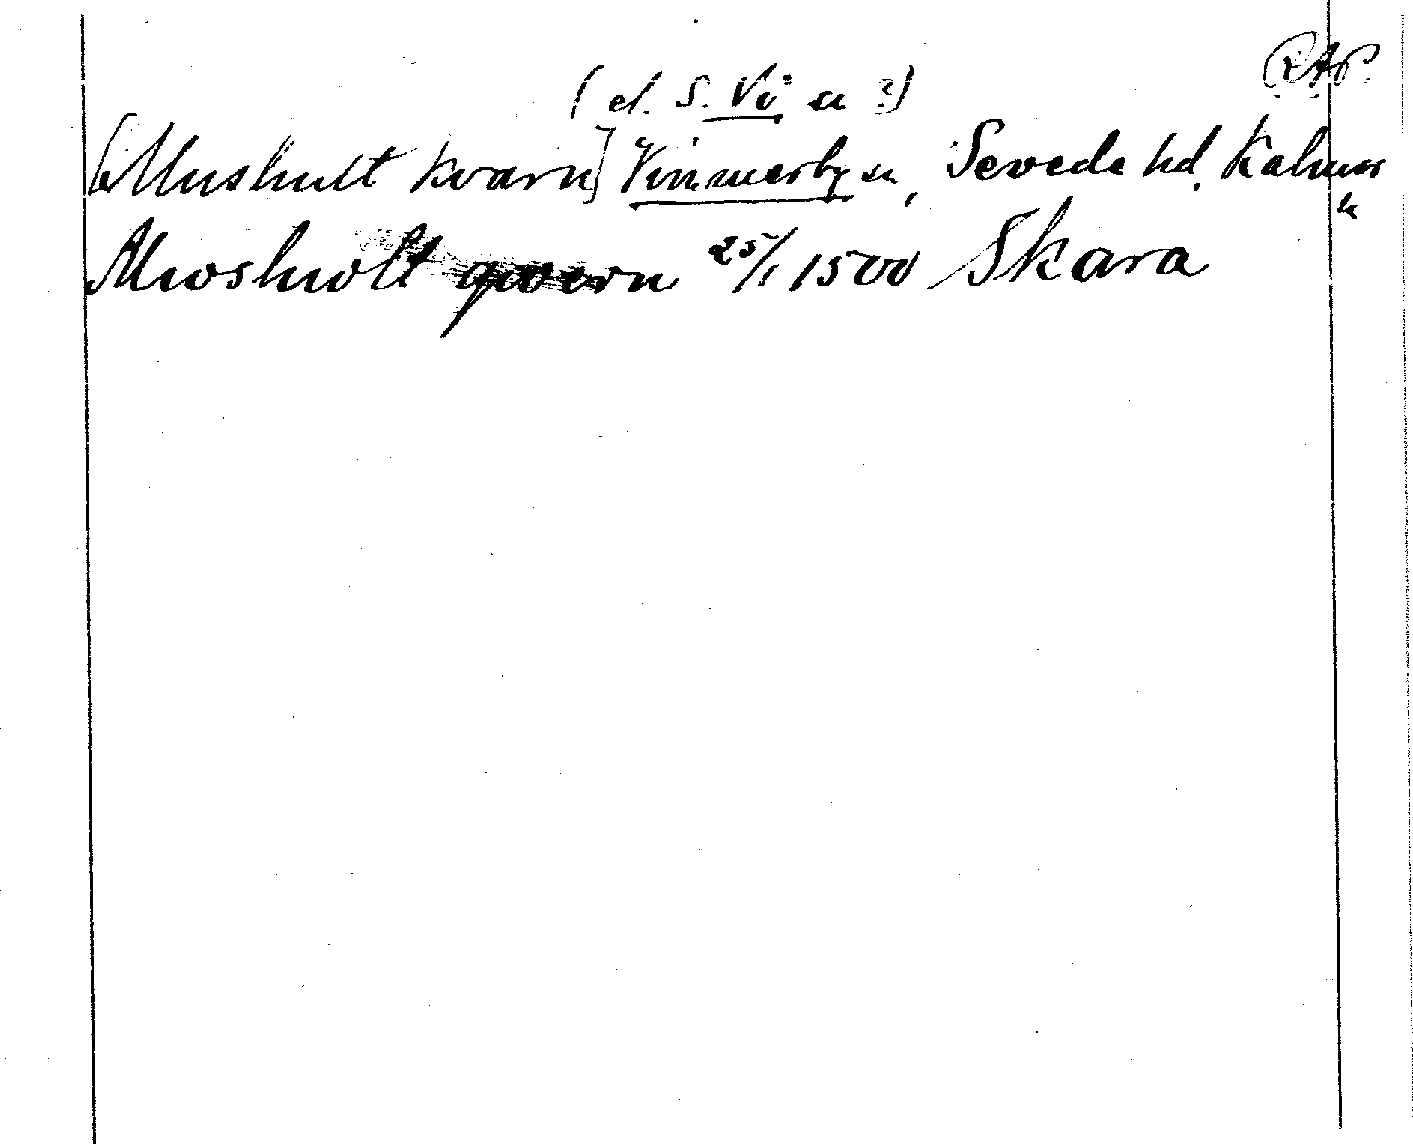 RAP.
(el. S. Vi sn ?)
[Mushult kvarn] Vimmerby sn, Sevede hd. Kalmar
ln
Mwshwlt qwern 25/1 1500 Skara